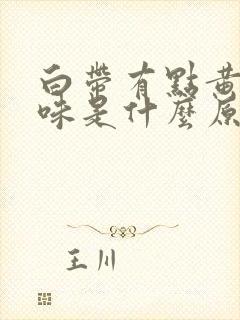 白帶有點黃
味是什麼原
王川